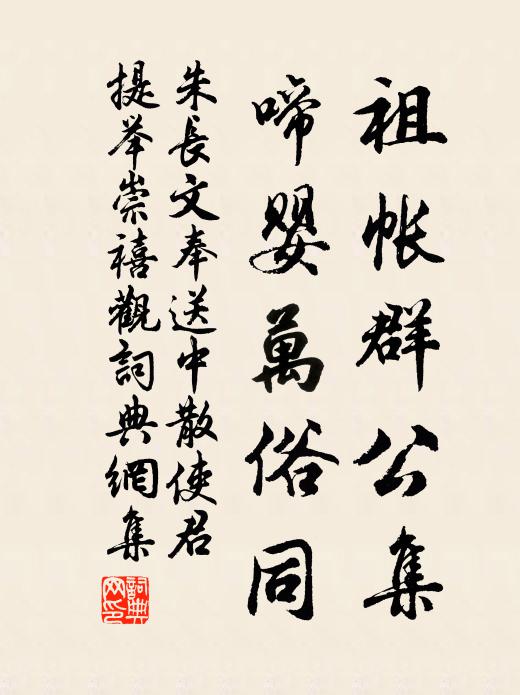 祖帐群公集
啼婴萬俗同
朱長文奉送中散使君
提举崇禧觀詞典網集
詞典网印